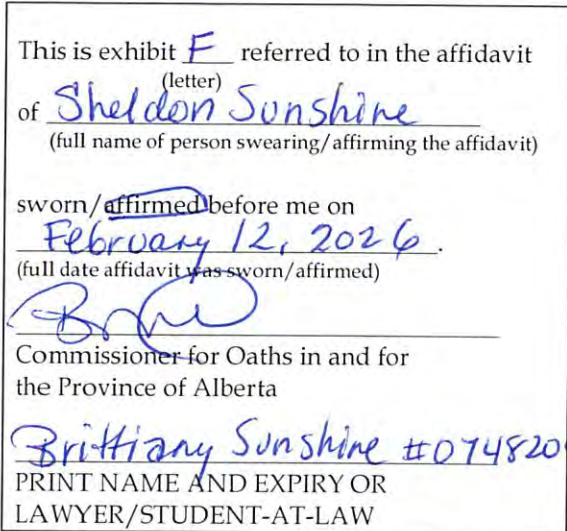 This is exhibit F referred to in the affidavit
(letter)
of Sheldon Sunshine
(full name of person swearing/affirming the affidavit)
sworn/affirmed before me on
February 12, 2026.
(full date affidavit was sworn/affirmed)
Commissioner for Oaths in and for
the Province of Alberta
Brittiany Sunshine #0748209
PRINT NAME AND EXPIRY OR
LAWYER/STUDENT-AT-LAW